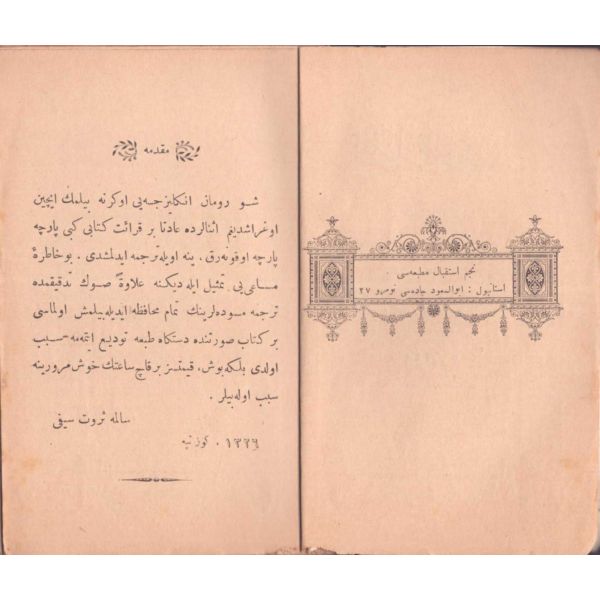 نجم استقبال مطبعه‌سی
استانبول : ابوالسعود جاده‌سی نومرو ٢٧
مقدمه
شو رومان انكليزجه‌یی اوكرنه بيلمك ايچين
اوغراشديغم اثنالرده عادتا بر قرائت كتابی كبی پارچه
پارچه اوقونه‌رق . ينه اويله ترجمه ايدلمشدی . بوخاطرۀ
مساعی‌یی تمثيل ايله ديكنه علاوةً صوك تدقيقمده
ترجمه مسوده‌لرينك تمام محافظه ايديله‌بيلمش اولماسی
بر كتاب صورتنده دستكاه طبعه توديع ايتمه‌مه سبب
اولدی بلكه بوش، قيمتسز بر قاچ ساعتك خوش مرورينه
سبب اوله‌بيلر .
سالمه ثروت سيفی
١٣٣٦ ، كوزتپه